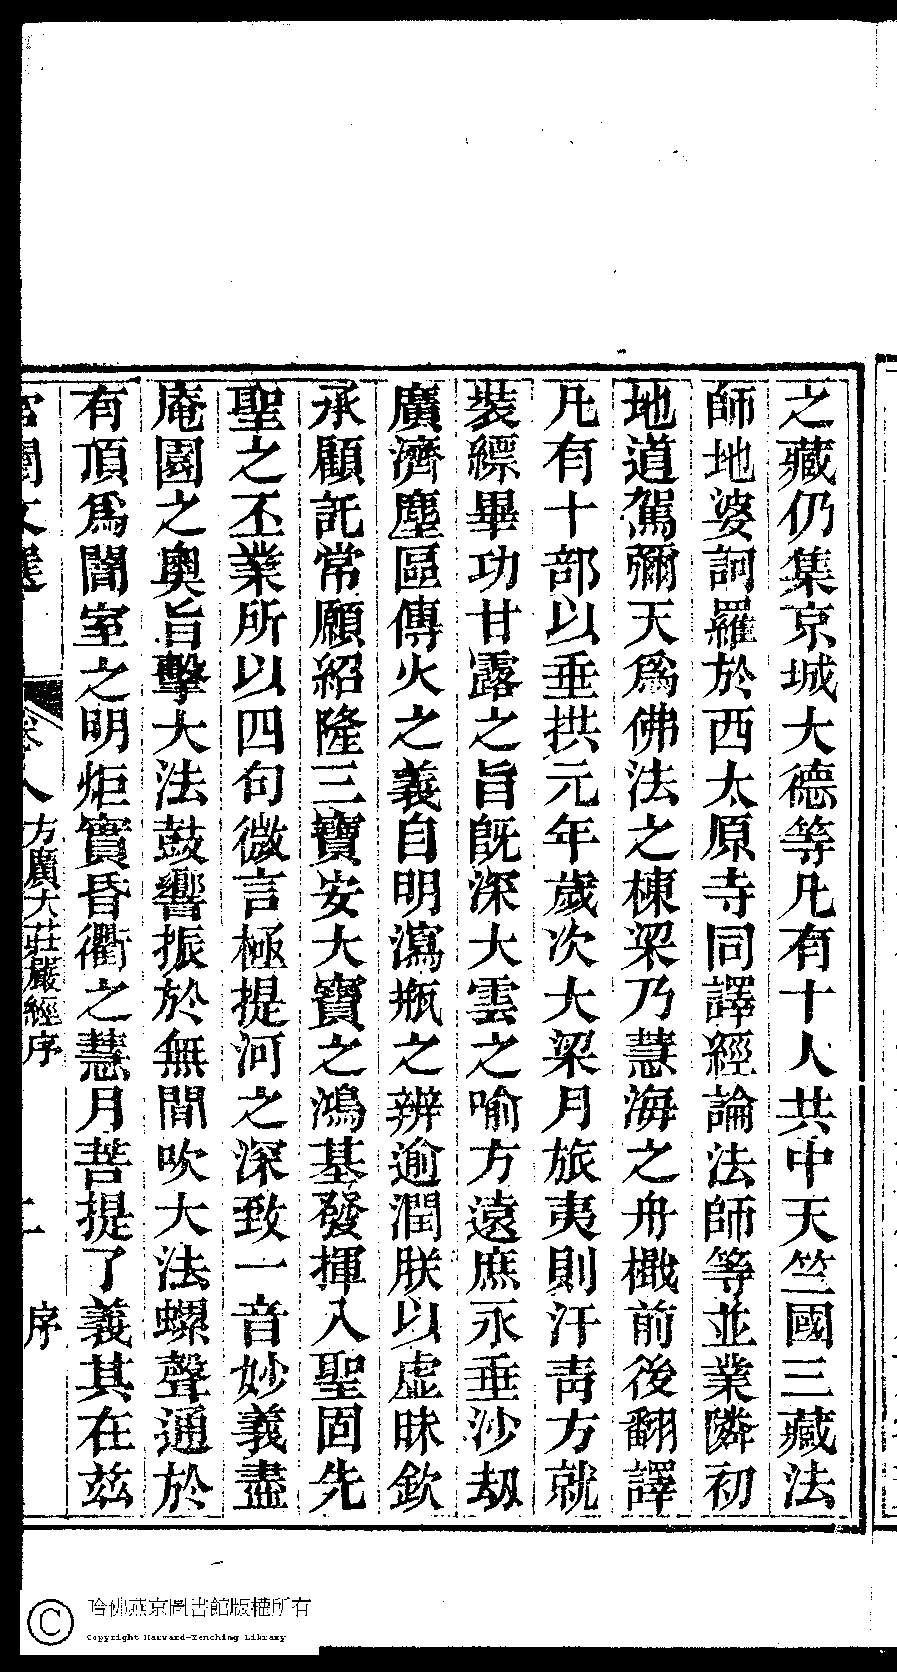 之藏仍集京城大德等凡有十人共中天竺國三藏法
師地婆訶羅於西太原寺同譯經論法師等並業隣初
地道駕彌天爲佛法之棟梁乃慧海之舟檝前後翻譯
凡有十部以垂拱元年歲次大梁月旅夷則汗靑方就
裝縹畢功甘露之旨旣深大雲之喻方遠庶永垂沙刼
廣濟塵區傳火之義自明瀉瓶之辨逾潤朕以虛昧欽
承顧託常願紹隆三寶安大寶之鴻基發揮入聖固先
聖之丕業所以四句微言極提河之深致一音妙義盡
庵園之奧旨擊大法鼓響振於無間吹大法螺聲通於
有頂爲闇室之明炬實昏衢之慧月菩提了義其在茲
宮閨文選 卷八 方廣大莊嚴經序 二 序
哈佛燕京圖書館版權所有
Copyright Harvard-Yenching Library